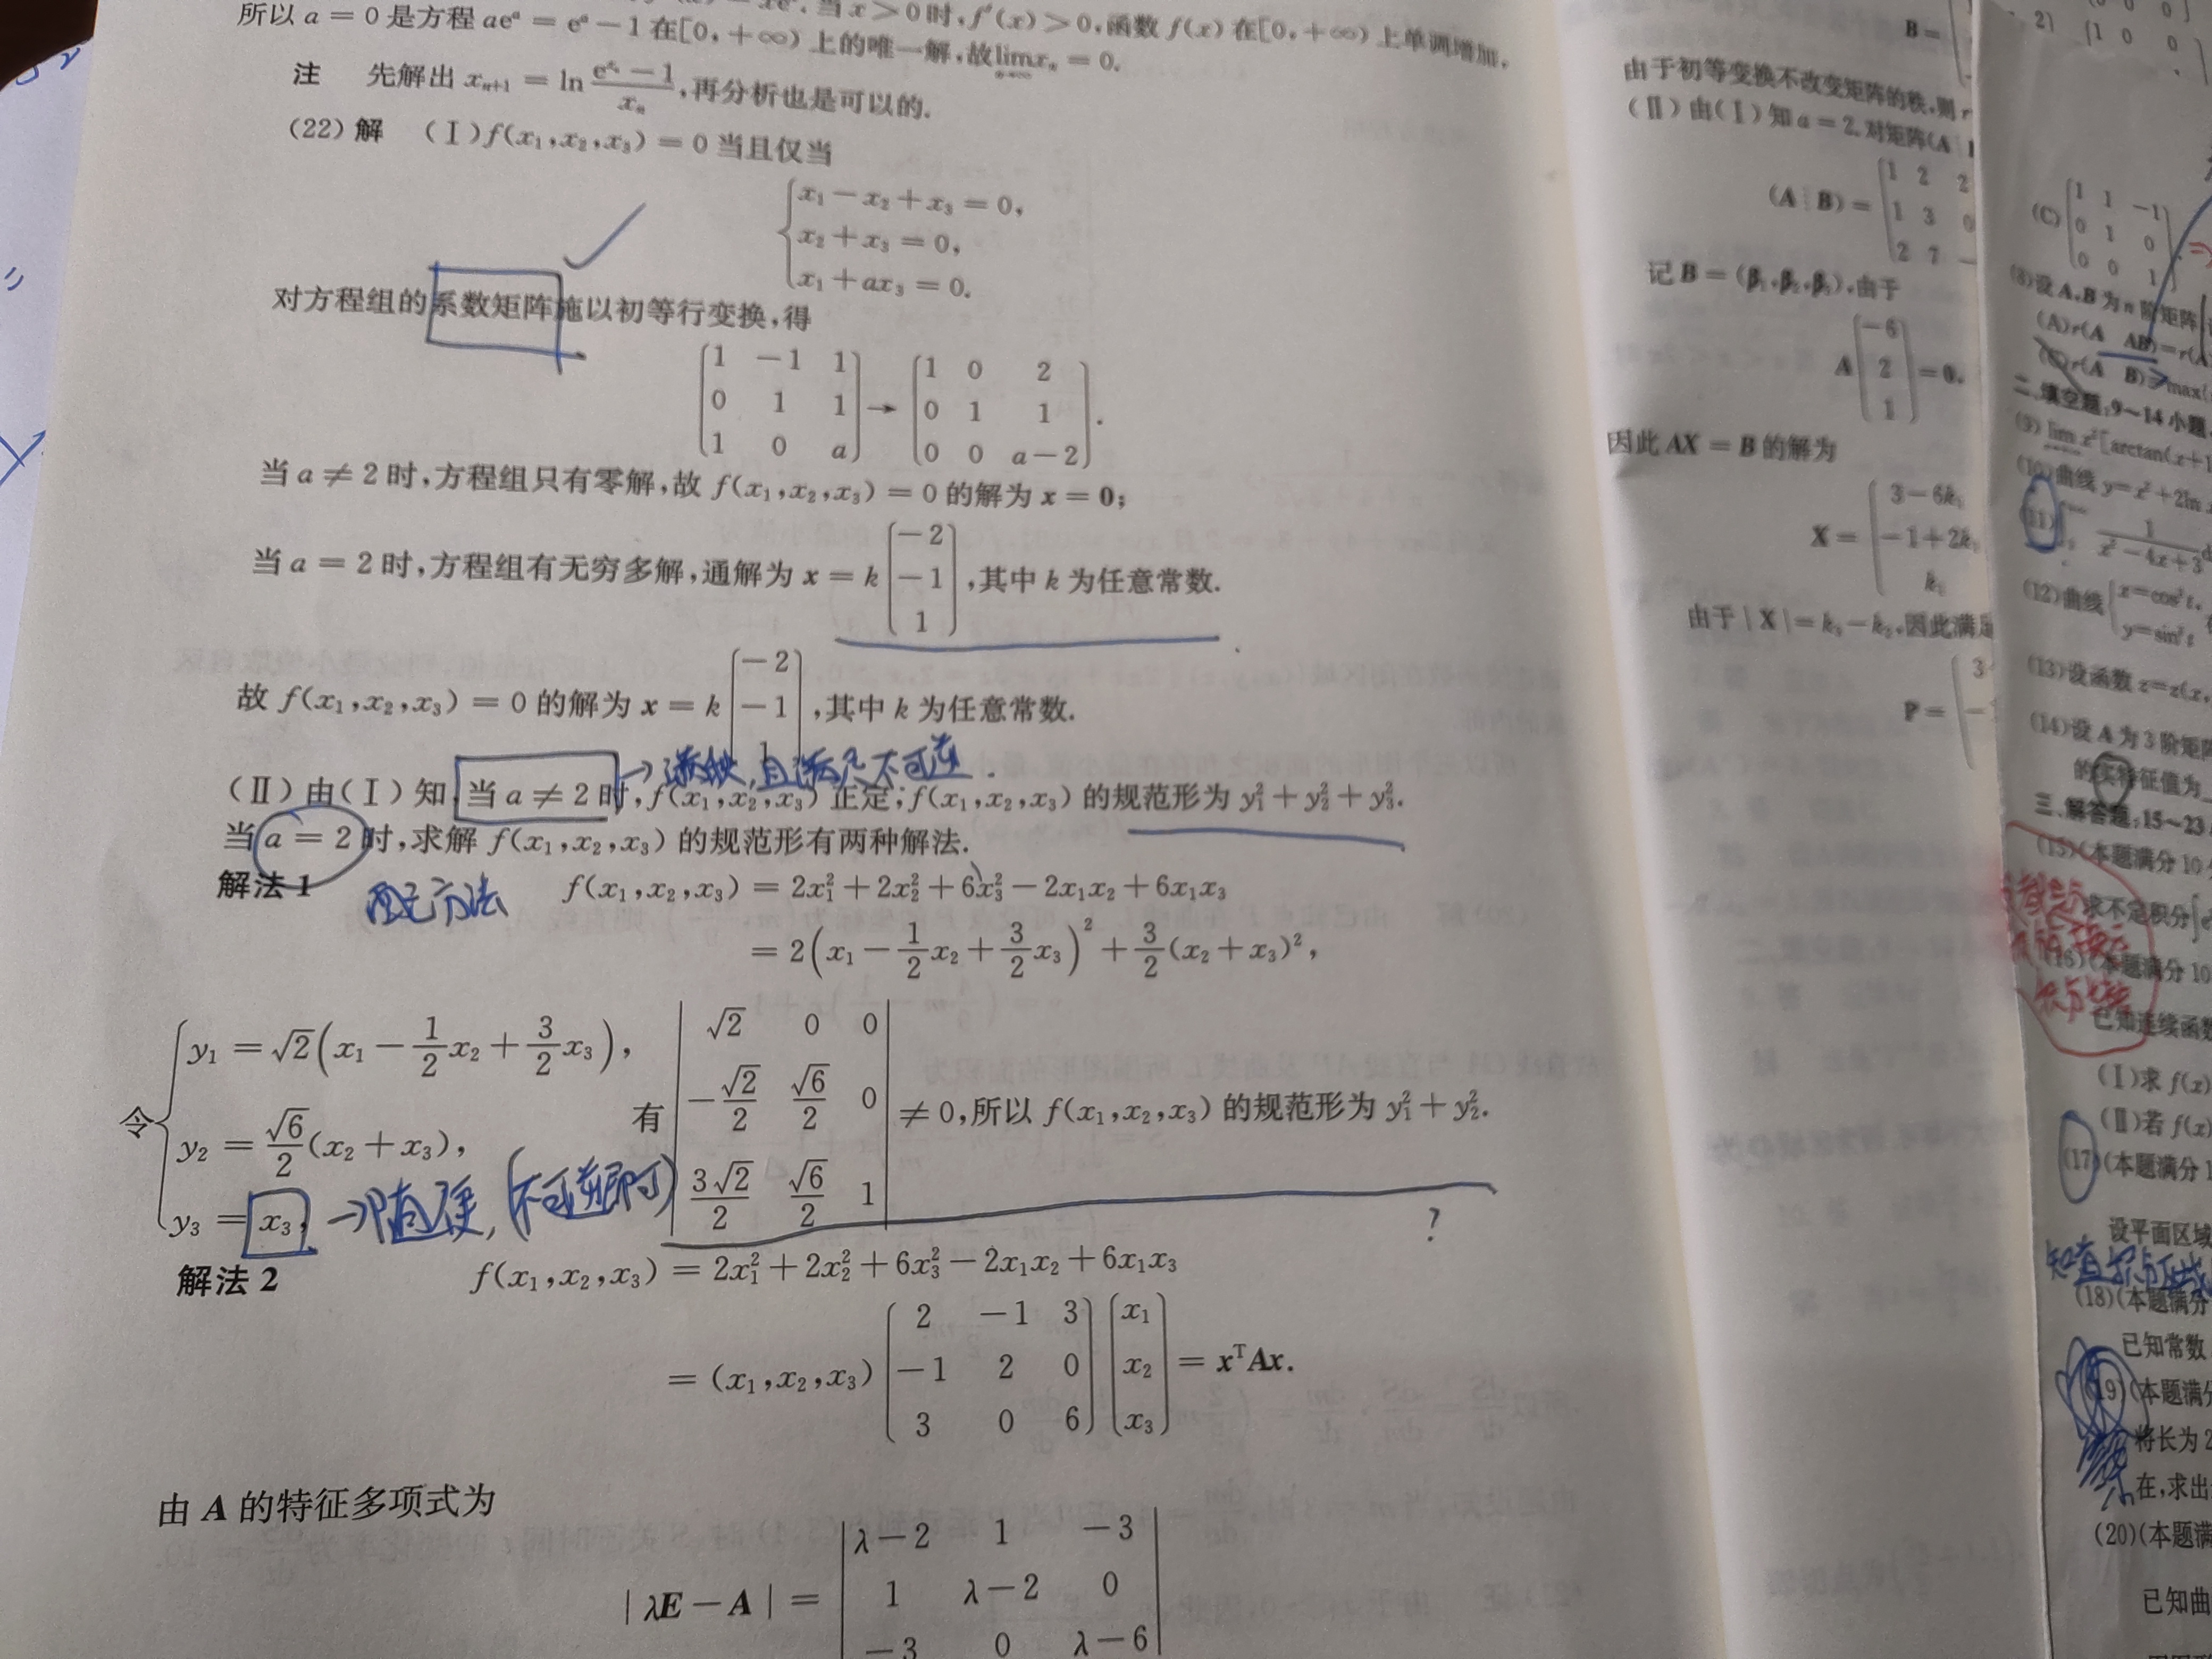 所以 a = 0 是方程 aeᵃ = eᵃ − 1 在[0, +∞) 上的唯一解,故 lim xₙ = 0.
当 x > 0 时, f′(x) > 0, 函数 f(x) 在[0, +∞) 上单调增加,
注 先解出 xₙ₊₁ = ln (e^{xₙ} − 1)/xₙ ,再分析也是可以的.
(22) 解 (Ⅰ) f(x₁,x₂,x₃) = 0 当且仅当
x₁ − x₂ + x₃ = 0,
x₂ + x₃ = 0,
x₁ + ax₃ = 0.
对方程组的系数矩阵施以初等行变换,得
1 −1 1   1 0 2
0 1 1 → 0 1 1 .
1 0 a   0 0 a−2
当 a ≠ 2 时,方程组只有零解,故 f(x₁,x₂,x₃) = 0 的解为 x = 0;
当 a = 2 时,方程组有无穷多解,通解为 x = k (−2 −1 1) ,其中 k 为任意常数.
故 f(x₁,x₂,x₃) = 0 的解为 x = k (−2 −1 1) ,其中 k 为任意常数.
(Ⅱ) 由(Ⅰ) 知,当 a ≠ 2 时, f(x₁,x₂,x₃) 正定; f(x₁,x₂,x₃) 的规范形为 y₁² + y₂² + y₃².
当 a = 2 时,求解 f(x₁,x₂,x₃) 的规范形有两种解法.
解法 1 f(x₁,x₂,x₃) = 2x₁² + 2x₂² + 6x₃² − 2x₁x₂ + 6x₁x₃
配方方法
= 2(x₁ − 1/2 x₂ + 3/2 x₃)² + 3/2 (x₂ + x₃)²,
令 y₁ = √2(x₁ − 1/2 x₂ + 3/2 x₃),
y₂ = √6/2 (x₂ + x₃),
y₃ = x₃,
有 | √2 0 0
−√2/2 √6/2 0
3√2/2 √6/2 1 | ≠ 0,所以 f(x₁,x₂,x₃) 的规范形为 y₁² + y₂².
?
解法 2 f(x₁,x₂,x₃) = 2x₁² + 2x₂² + 6x₃² − 2x₁x₂ + 6x₁x₃
= (x₁,x₂,x₃) (2 −1 3
−1 2 0
3 0 6) (x₁ x₂ x₃) = xᵀAx.
由 A 的特征多项式为
|λE − A| = | λ−2 1 −3
1 λ−2 0
−3 0 λ−6 |
B =
由于初等变换不改变矩阵的秩,则 r
(Ⅱ) 由(Ⅰ) 知 a = 2, 对矩阵(A
(A ⋮ B) = 1 2 2
1 3 0
2 7 −
记 B = (β₁,β₂,β₃),由于
A (−6 2 1) = 0,
因此 AX = B 的解为
X = 3 − 6k₁
−1 + 2k₁
k₁
由于 |X| = k₃ − k₂,因此满足
P = 3
(C) 1 1 −1
0 1 0
0 0 1
(8)设 A,B 为 n 阶矩阵,
(A)r(A AB)=r(A
(C)r(A B)=max{
二、填空题:9~14 小题,
(9) lim x²[arctan(x+1
(10)曲线 y=x²+2ln x
(11) ∫ 1/(x²−4x+3) d
(12)曲线 x=cos³t,
y=sin³t
(13)设函数 z=z(x,
(14)设 A 为 3 阶矩阵
的实特征值为
三、解答题:15~23
(15)(本题满分 10
求不定积分∫e
(16)(本题满分 10
已知连续函数
(Ⅰ)求 f(x)
(Ⅱ)若 f(x)
(17)(本题满分 1
设平面区域
(18)(本题满分
已知常数
(19)(本题满分
将长为 2
在,求出
(20)(本题满
已知曲